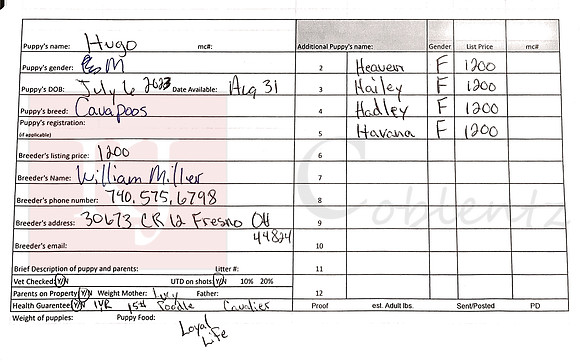 Puppy's name: Hugo mc#: Additional Puppy's name: Gender List Price mc#
Puppy's gender: M 2 Heaven F 1200
Puppy's DOB: July 6 2023 Date Available: Aug 31 3 Hailey F 1200
Puppy's breed: Cavapoos 4 Hadley F 1200
Puppy's registration:
(if applicable) 5 Havana F 1200
Breeder's listing price: 1200 6
Breeder's Name: William Miller 7
Breeder's phone number: 740.575.6798 8
Breeder's address: 30673 CR 12 Fresno OH 9
44824
Breeder's email: 10
Coblentz
Brief Description of puppy and parents: Litter #: 11
Vet Checked: Y/N UTD on shots: Y/N 10% 20%
Parents on Property Y/N Weight Mother: Father: 12
Health Guarantee Y/N 1YR Poodle Cavalier Proof est. Adult lbs. Sent/Posted PD
Weight of puppies: Puppy Food: Loyal
Life